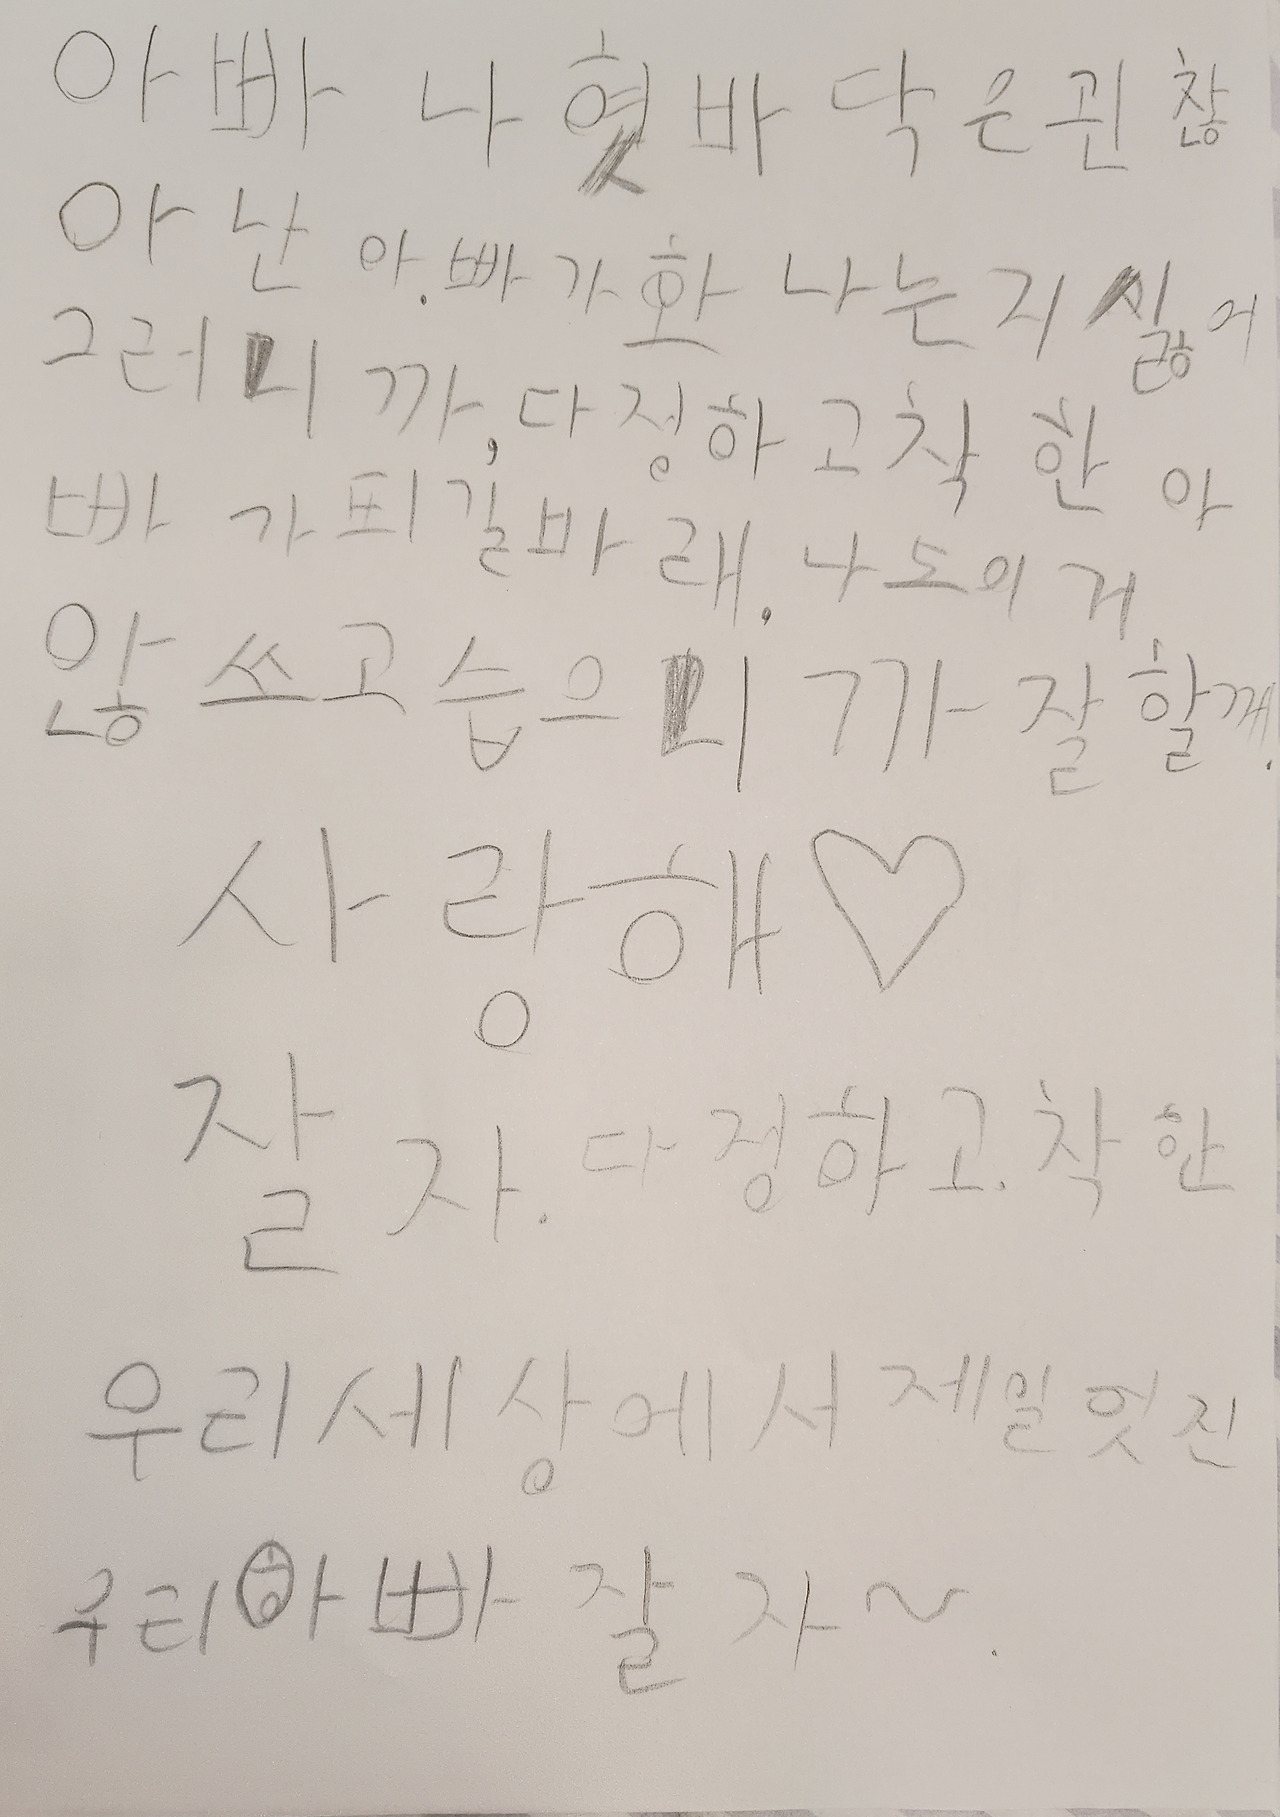 아빠 나 혓바닥은괸찮
아 난 아.빠가화나는지싫어
그러니까,다정하고착한 아
빠가 퇴길바래, 나도의거
않쓰고습으니까 잘할께.
사랑해♡
잘자. 다정하고.착한
우리세상에서제밀멋진
우리아빠 잘자~.